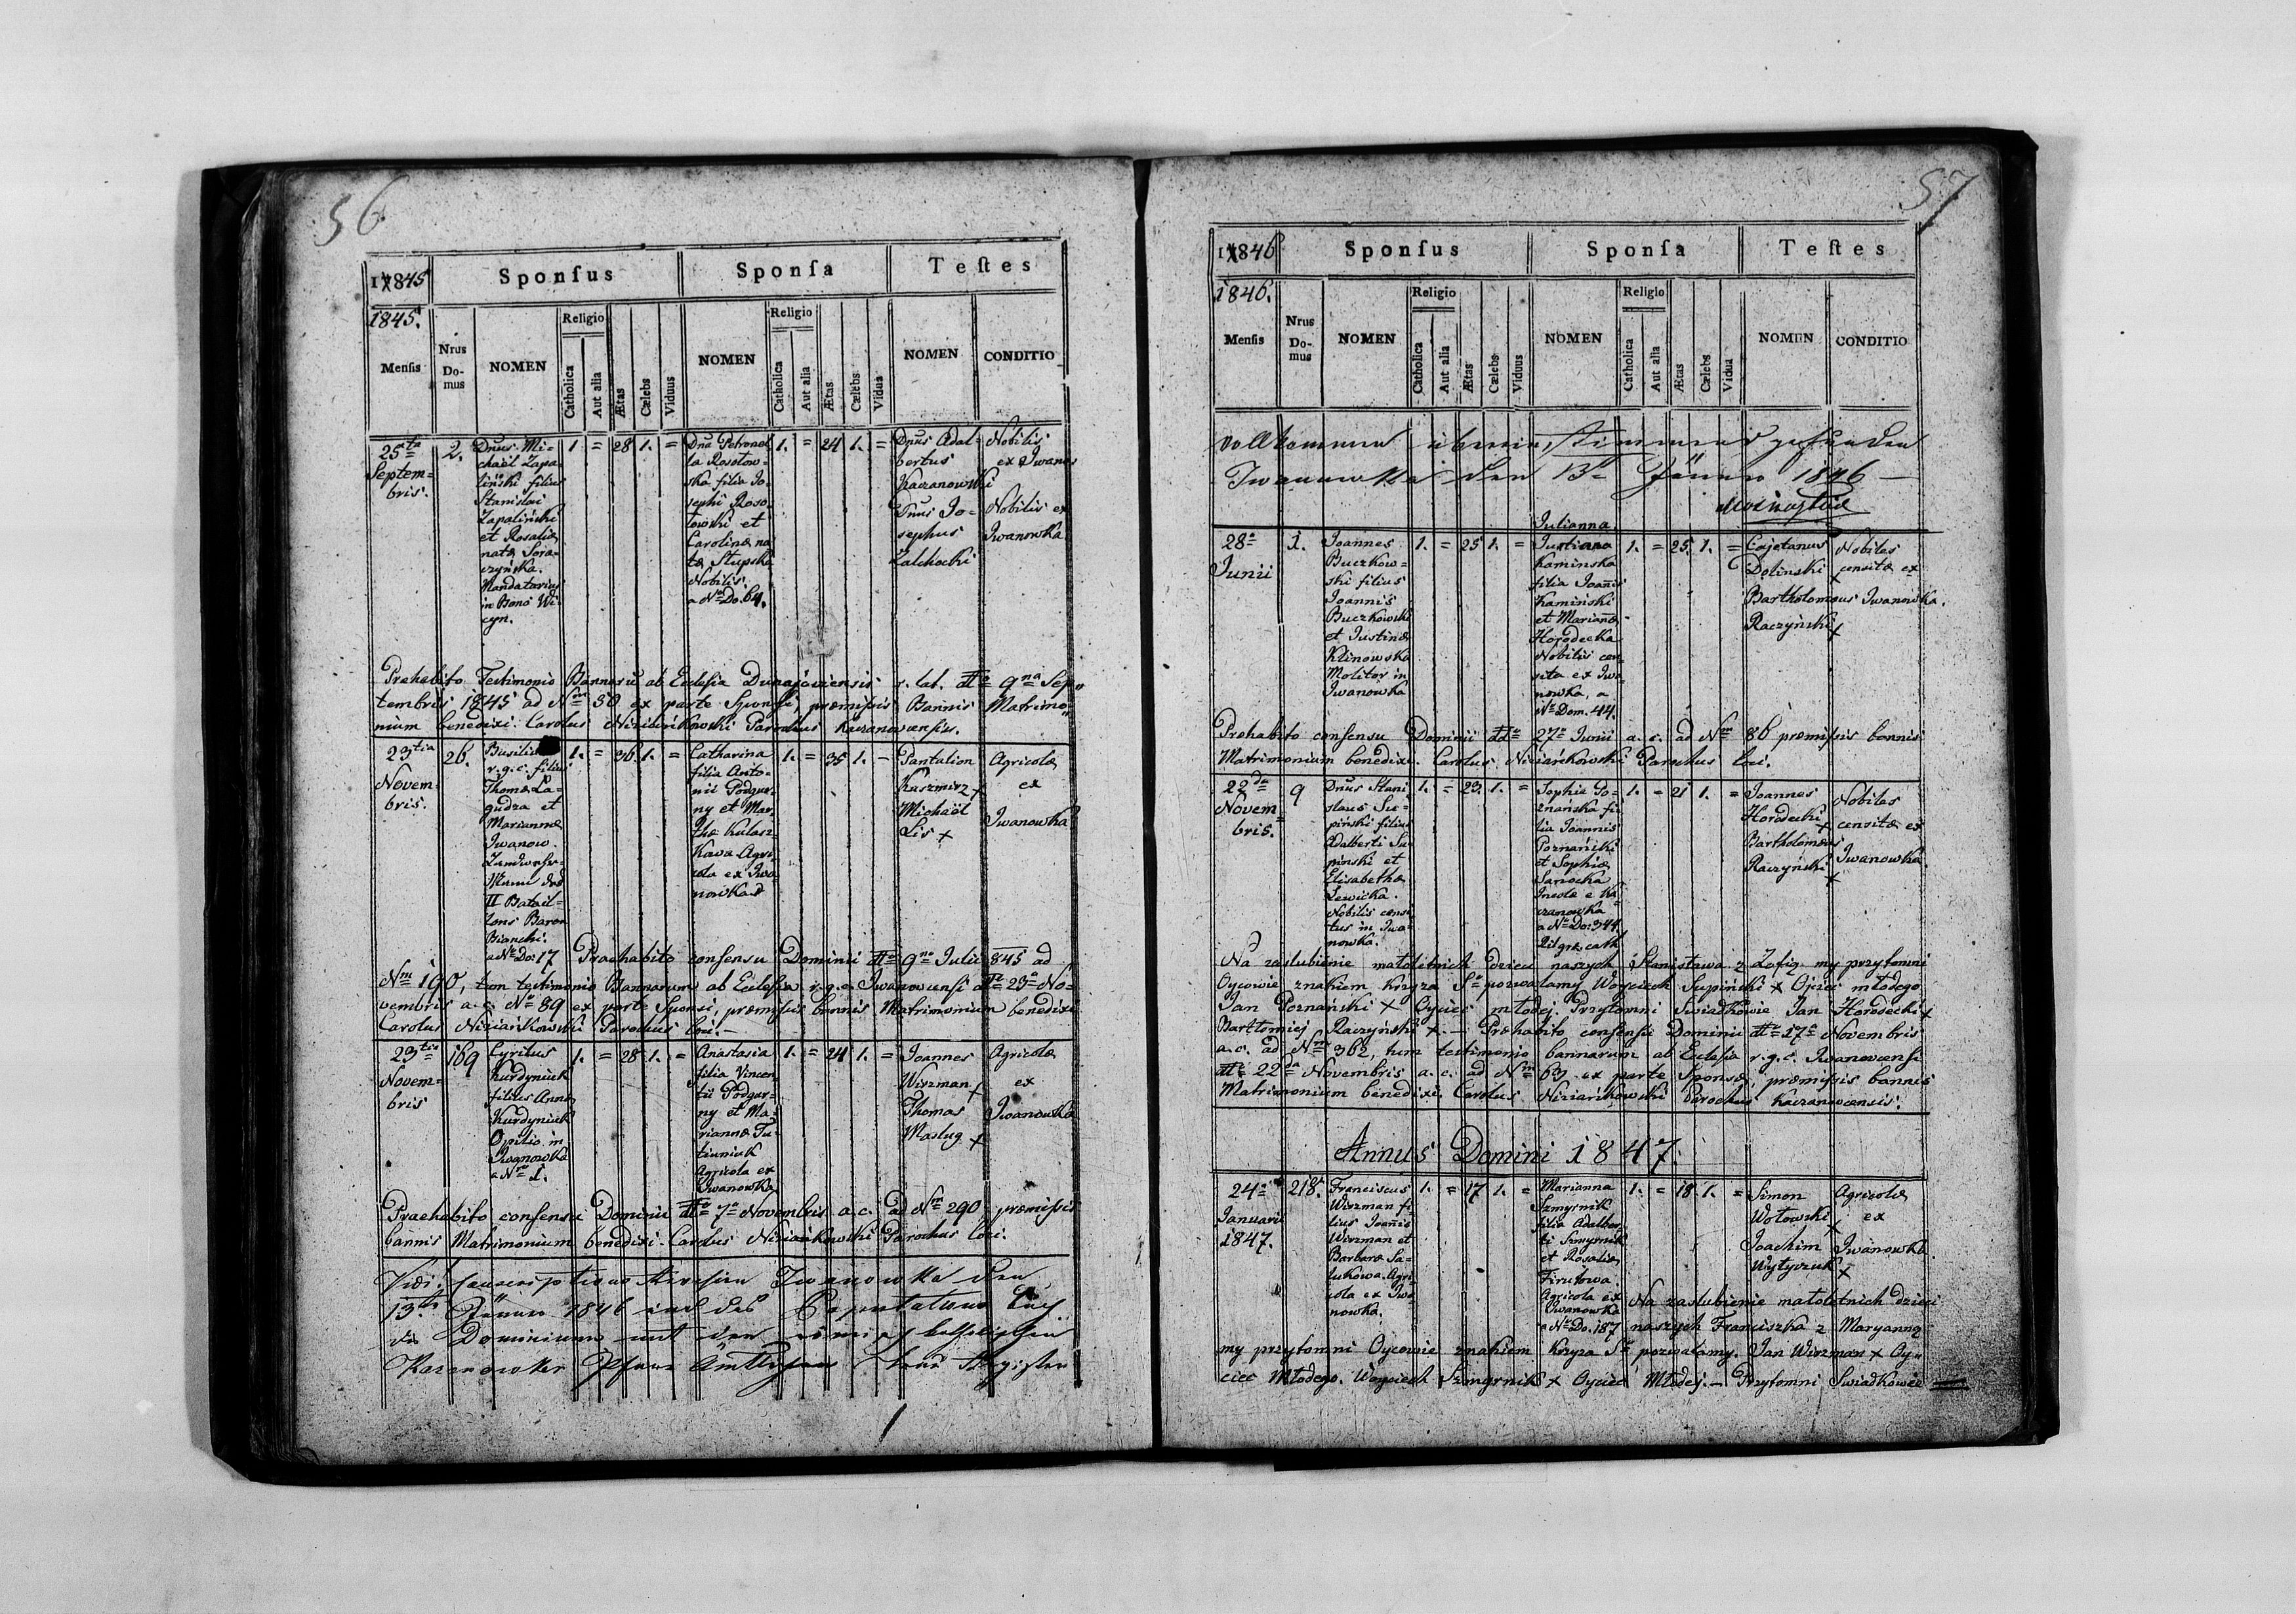 56
17845
Sponſus
Sponſa
Teſtes
1845.
Menſis
Nrus Domus
NOMEN
Religio
Catholica
Aut alia
Ætas
Cælebs
Viduus
NOMEN
Religio
Catholica
Aut alia
Ætas
Cælebs
Vidua
NOMEN
CONDITIO
25ta
Septem=
bris.
2.
Dnus Mi=
chaël Zapa=
liński filius
Stanislai
Zapaliński
et Rosaliæ
natæ Sora=
czyńska.
Mandatarius
in Bonis Wi=
cyn.
1 = 28 1. =
Dna Petronel
la Rosotow=
ska filia Jo=
sephi Roso
towski et
Carolinæ na
tæ Stupska
Nobilis.
a No Do. 64.
1. = 24 1. =
Dnus Adal=
bertus
Kaczanowski
Dnus Jo=
sephus
Zalchocki
Nobilis
ex Iwano
Nobilis ex
Iwanowka
Prahabito Testimonio Bannorū ab Eclesia Dunajoviensis r. lat. dto 9na Sep=
tembris 1845 ad Nm 30 ex parte Sponsi, præmissis Bannis Matrimo=
nium benedixi. Carolus Niziańkowski Parochus Kaczanowensis.
23tia
Novem=
bris.
26.
Basilius
r.g.c. filius
Thomæ Ła=
gudza et
Mariannæ
Iwanow.
Landwehr=
Mann des
II Batail=
lons Baron
Bianchi.
a No Do: 17
1. = 36 1. =
Catharina
filia Anto=
nii Podgur=
ny et Mar=
thæ Kulasz=
Kowa Agri
cola ex Iwa
nowka
1. = 35 1. -
Pantalion
Kuszmirz +
Michaël
Lis +
Agricolæ
ex
Iwanowka
Praehabito consensu Dominii dto 9na Julii 845 ad
Nm 190, tum testimonio Bannorum ab Eclesia r.g.c. Iwanowensi dto 23a No=
vembris a.c. No 89 ex parte Sponsi, præmissis bannis Matrimonium benedixi
Carolus Niziańkowski Parochus loci. -
23tia
Novem=
bris
169
Cyrilus
Kurdyniuk
filius Annæ
Kurdyniuk
Opilio in
Iwanowka
a Nro 1.
1. = 28 1. =
Anastasia
filia Vincen
tii Podgur=
ny et Ma=
riannæ Tu=
tiuniuk
Agricola ex
Iwanowka
1. = 24 1. =
Joannes
Wirzman +
Thomas
Maslug +
Agricolæ
ex
Iwanowka
Praehabito consensu Dominii dto 7a Novembris a.c. ad Nm 290 præmissis
bannis Matrimonium benedixi. Carolus Niziańkowski Parochus loci.
Vidi. Conscriptions Revision Iwanowka den
13ten Jänner 1846 und das
Dominium und den
Kazanowker Pfarr
57
17846
Sponſus
Sponſa
Teſtes
1846.
Menſis
Nrus Domus
NOMEN
Religio
Catholica
Aut alia
Ætas
Cælebs
Viduus
NOMEN
Religio
Catholica
Aut alia
Ætas
Cælebs
Vidua
NOMEN
CONDITIO
vollkommen übereinstimmend gefunden
Iwanowka den 13t Jänner 1846
28a
Junii
1.
Joannes
Buczkow=
ski filius
Joannis
Buczkowski
et Justinæ
Klinowska
Molitor in
Iwanowka
1. = 25 1. =
Julianna
Kaminska
filia Joanis
Kamiński
et Marianæ
Horodecka
Nobilis cen
sita ex Iwa
nowka, a
No Dom. 44.
1. = 25. 1. =
Cajetanus
Dolinski +
Bartholomæus
Raczyński +
Nobiles
censitæ ex
Iwanowka.
Prahabito consensu Dominii ddto 27a Junii a.c. ad Nm 86 præmissis bannis
Matrimonium benedixi. Carolus Niziańkowski Parochus loci.
22da
Novem
bris.
9
Dnus Stani
slaus Su=
piński filius
Adalberti Su
piński et
Elisabethæ
Lewicka.
Nobilis censi
tus in Iwa=
nowka.
1. = 23. 1. =
Sophia Po=
znańska fi=
lia Joannis
Poznański
et Sophiæ
Sanocka
Incolæ e Ka
czanowka
a No Do: 344
Rit. gr. cath.
1. = 21 1. =
Joannes
Horodecki +
Bartholomæus
Raczyński +
Nobiles
censitæ ex
Iwanowka.
Na zaslubienie małoletnich dzieci naszych Stanisława z Zofią my przytomni
Oycowie znakiem krzyża So pozwalamy Woyciech Supiński + Ojciec młodego
Jan Poznański + Oyciec młodej. Przytomni Swiadkowie Jan Horodecki +
Bartłomiej Raczyński +. - Præhabito consensu Dominii dto 17a Novembris
a.c. ad Nm 362, tum testimonio bannorum ab Eclesia r.g.c. Iwanowensi
dto 22a Novembris a.c. ad Nm 63 ex parte Sponsæ, præmissis bannis
Matrimonium benedixi. Carolus Niziańkowski Parochus Kaczanowensis.
Annus Domini 1847.
24a
Januarii
1847.
218.
Franciscus
Wirzman fi=
lius Joañis
Wirzman et
Barbaræ Sa=
lukowa. Agri=
cola ex Iwa
nowka.
1. = 17 1. =
Marianna
Szmyrnik
filia Adalber=
ti Szmyrnik
et Rosaliæ
Firutowa.
Agricola ex
Iwanowka
a No Do. 187
1. = 18 1. =
Simon
Wołowski +
Joachim
Wytyczuk +
Agricolæ
ex
Iwanowka
Na zaslubienie małoletnich dzieci
naszych Franciszka z Maryanną
my przytomni Oycowie znakiem Krzyża So pozwalamy. Jan Wirzman + Oy=
ciec Młodego. Woyciech Szmyrnik + Oyciec Młodej. - Przytomni Swiadkowie